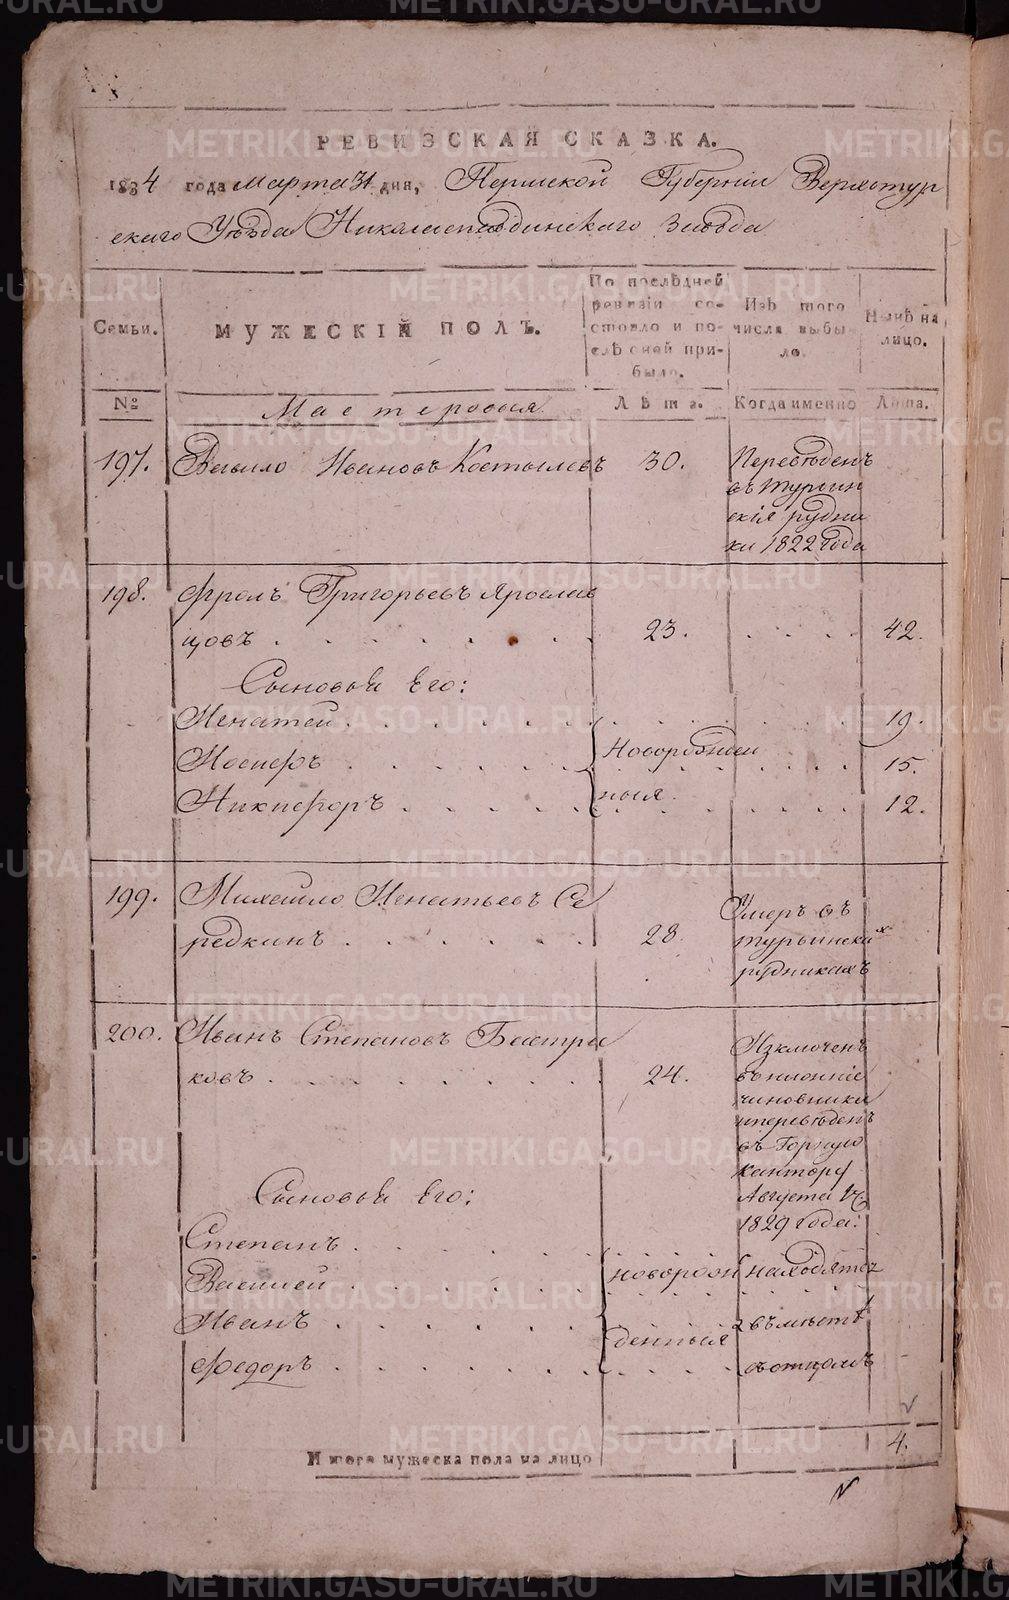 РЕВИЗСКАЯ СКАЗКА.
1834 года Марта 31 дня, Пермской Губернiи Верхотур
скаго Уѣзда Николаепавдинскаго завода
Семьи.
МУЖЕСКІЙ ПОЛЪ.
По послѣдней
ревизіи со-
стояло и по-
слѣ оней при-
было.
Изъ того
числа выбы-
ло.
Нынѣ на
лицо.
№
Мастеровыя
Лѣта.
Когда именно
Лѣта.
197. Вавило Ивановъ Костылевъ 30. Переведенъ
въ Турьин
скія рудни
ки 1822 года
198. Фролъ Григорьевъ Ярослав
цовъ 23. 42.
Сыновья Его:
Игнатей 19.
Новорожден
Носиеръ 15.
ныя.
Никифоръ 12.
199. Михайло Игнатьевъ Се
редкинъ 28. Умеръ въ
турьински
х
рудникахъ
200. Иванъ Степановъ Бастри
ковъ 24. Изключенъ
чиновники
ипереведенъ
въ Горную
Кантору
Августа
1829 года:
Сыновья Его:
Степанъ
Василей новорож находятся
Иванъ денныя вместѣ
Федоръ съ отцомъ
Итого мужеска пола на лицо 4.
METRIKI.GASO-URAL.RU